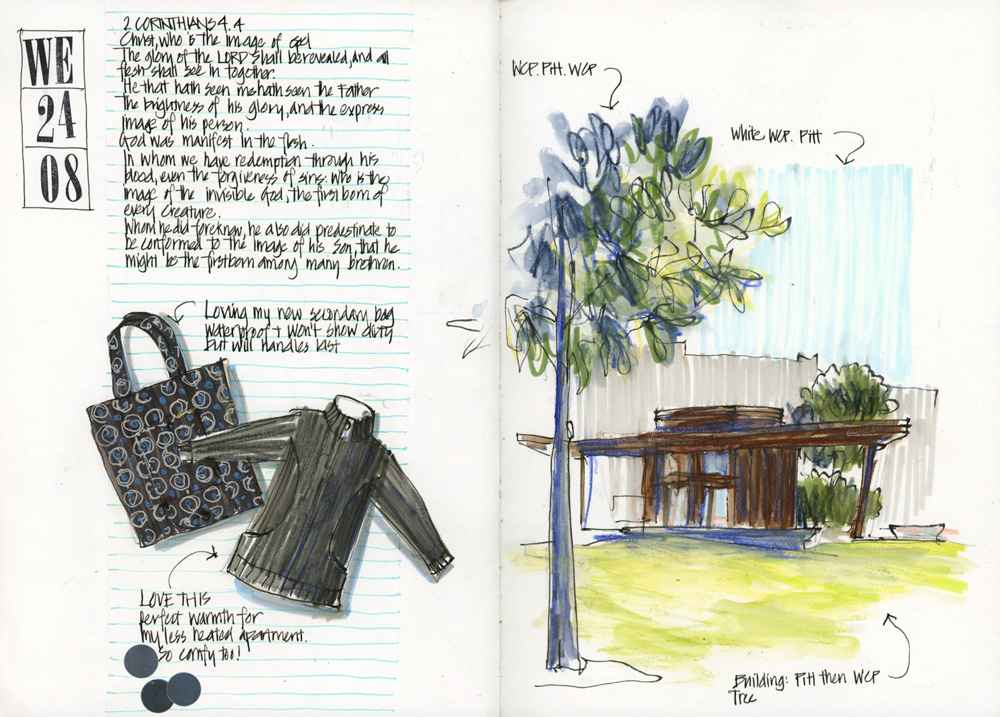 WE
24
08
2 CORINTHIANS 4.4
Christ, who is the image of God
The glory of the LORD shall be revealed, and all
flesh shall see in together.
He that hath seen me hath seen the Father
The brightness of his glory, and the express
image of his person.
God was manifest in the flesh.
In whom we have redemption through his
blood, even the forgiveness of sins: who is the
image of the invisible God, the first born of
every creature.
Whom he did foreknow, he also did predestinate to
be conformed to the image of his son, that he
might be the firstborn among many brethren.
Loving my new secondary bag
waterproof + won't show dirty
but will handles last
LOVE THIS
perfect warmth for
my less heated apartment.
So comfy too!
WCP. Pitt. WCP
White WCP. Pitt
Building: Pitt then WCP
Tree